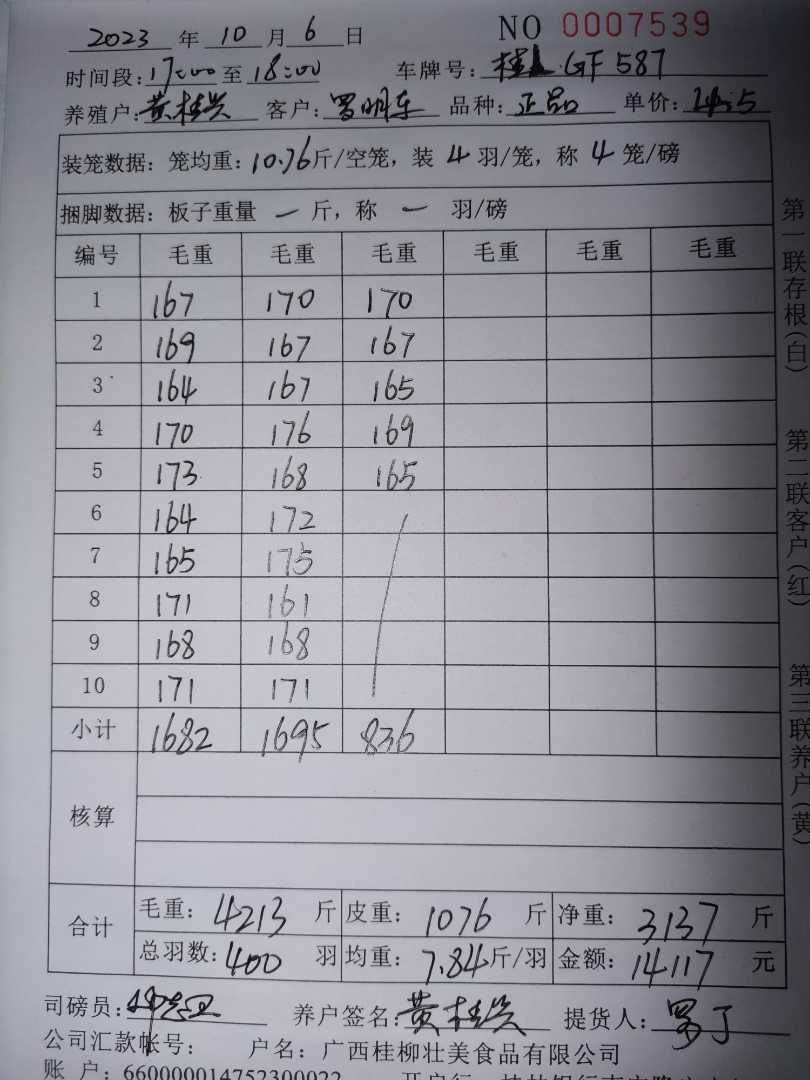 2023 年 10 月 6 日 NO 0007539
时间段: 17:00 至 18:00 车牌号: 桂 GF 587
养殖户: 黄桂兴 客户: 罗明车 品种: 正品 单价: 4.5
装笼数据: 笼均重: 10.76斤/空笼, 装 4 羽/笼, 称 4 笼/磅
捆脚数据: 板子重量 一 斤, 称 一 羽/磅
编号 毛重 毛重 毛重 毛重 毛重 毛重
1 167 170 170
2 169 167 167
3 164 167 165
4 170 176 169
5 173 168 165
6 164 172
7 165 175
8 171 161
9 168 168
10 171 171
小计 1682 1695 836
核算
合计
毛重: 4213 斤 皮重: 1076 斤 净重: 3137 斤
总羽数: 400 羽 均重: 7.84斤/羽 金额: 14117 元
司磅员: 养户签名: 黄桂兴 提货人: 罗丁
公司汇款帐号: 户名: 广西桂柳壮美食品有限公司
账 户: 660000014752300022
第一联存根(白) 第二联客户(红) 第三联养户(黄)